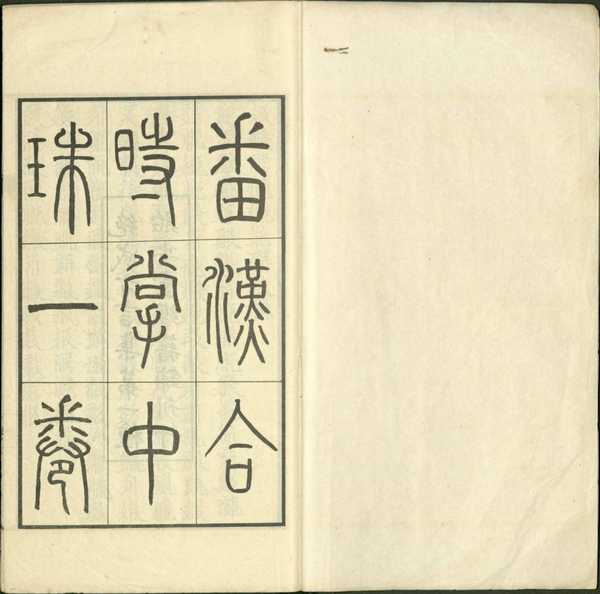 番漢合
時掌中
珠一卷